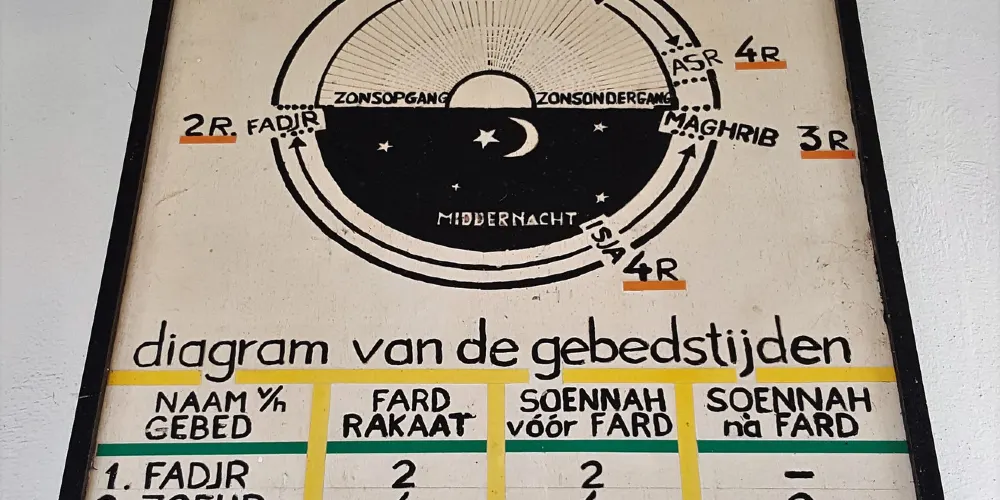 ASR 4R
ZONSOPGANG ZONSONDERGANG
2R. FADJR MAGHRIB 3R
MIDDERNACHT
ISJA
4R
diagram van de gebedstijden
NAAM v/h GEBED
FARD RAKAAT
SOENNAH vóór FARD
SOENNAH nà FARD
1. FADJR 2 2 –